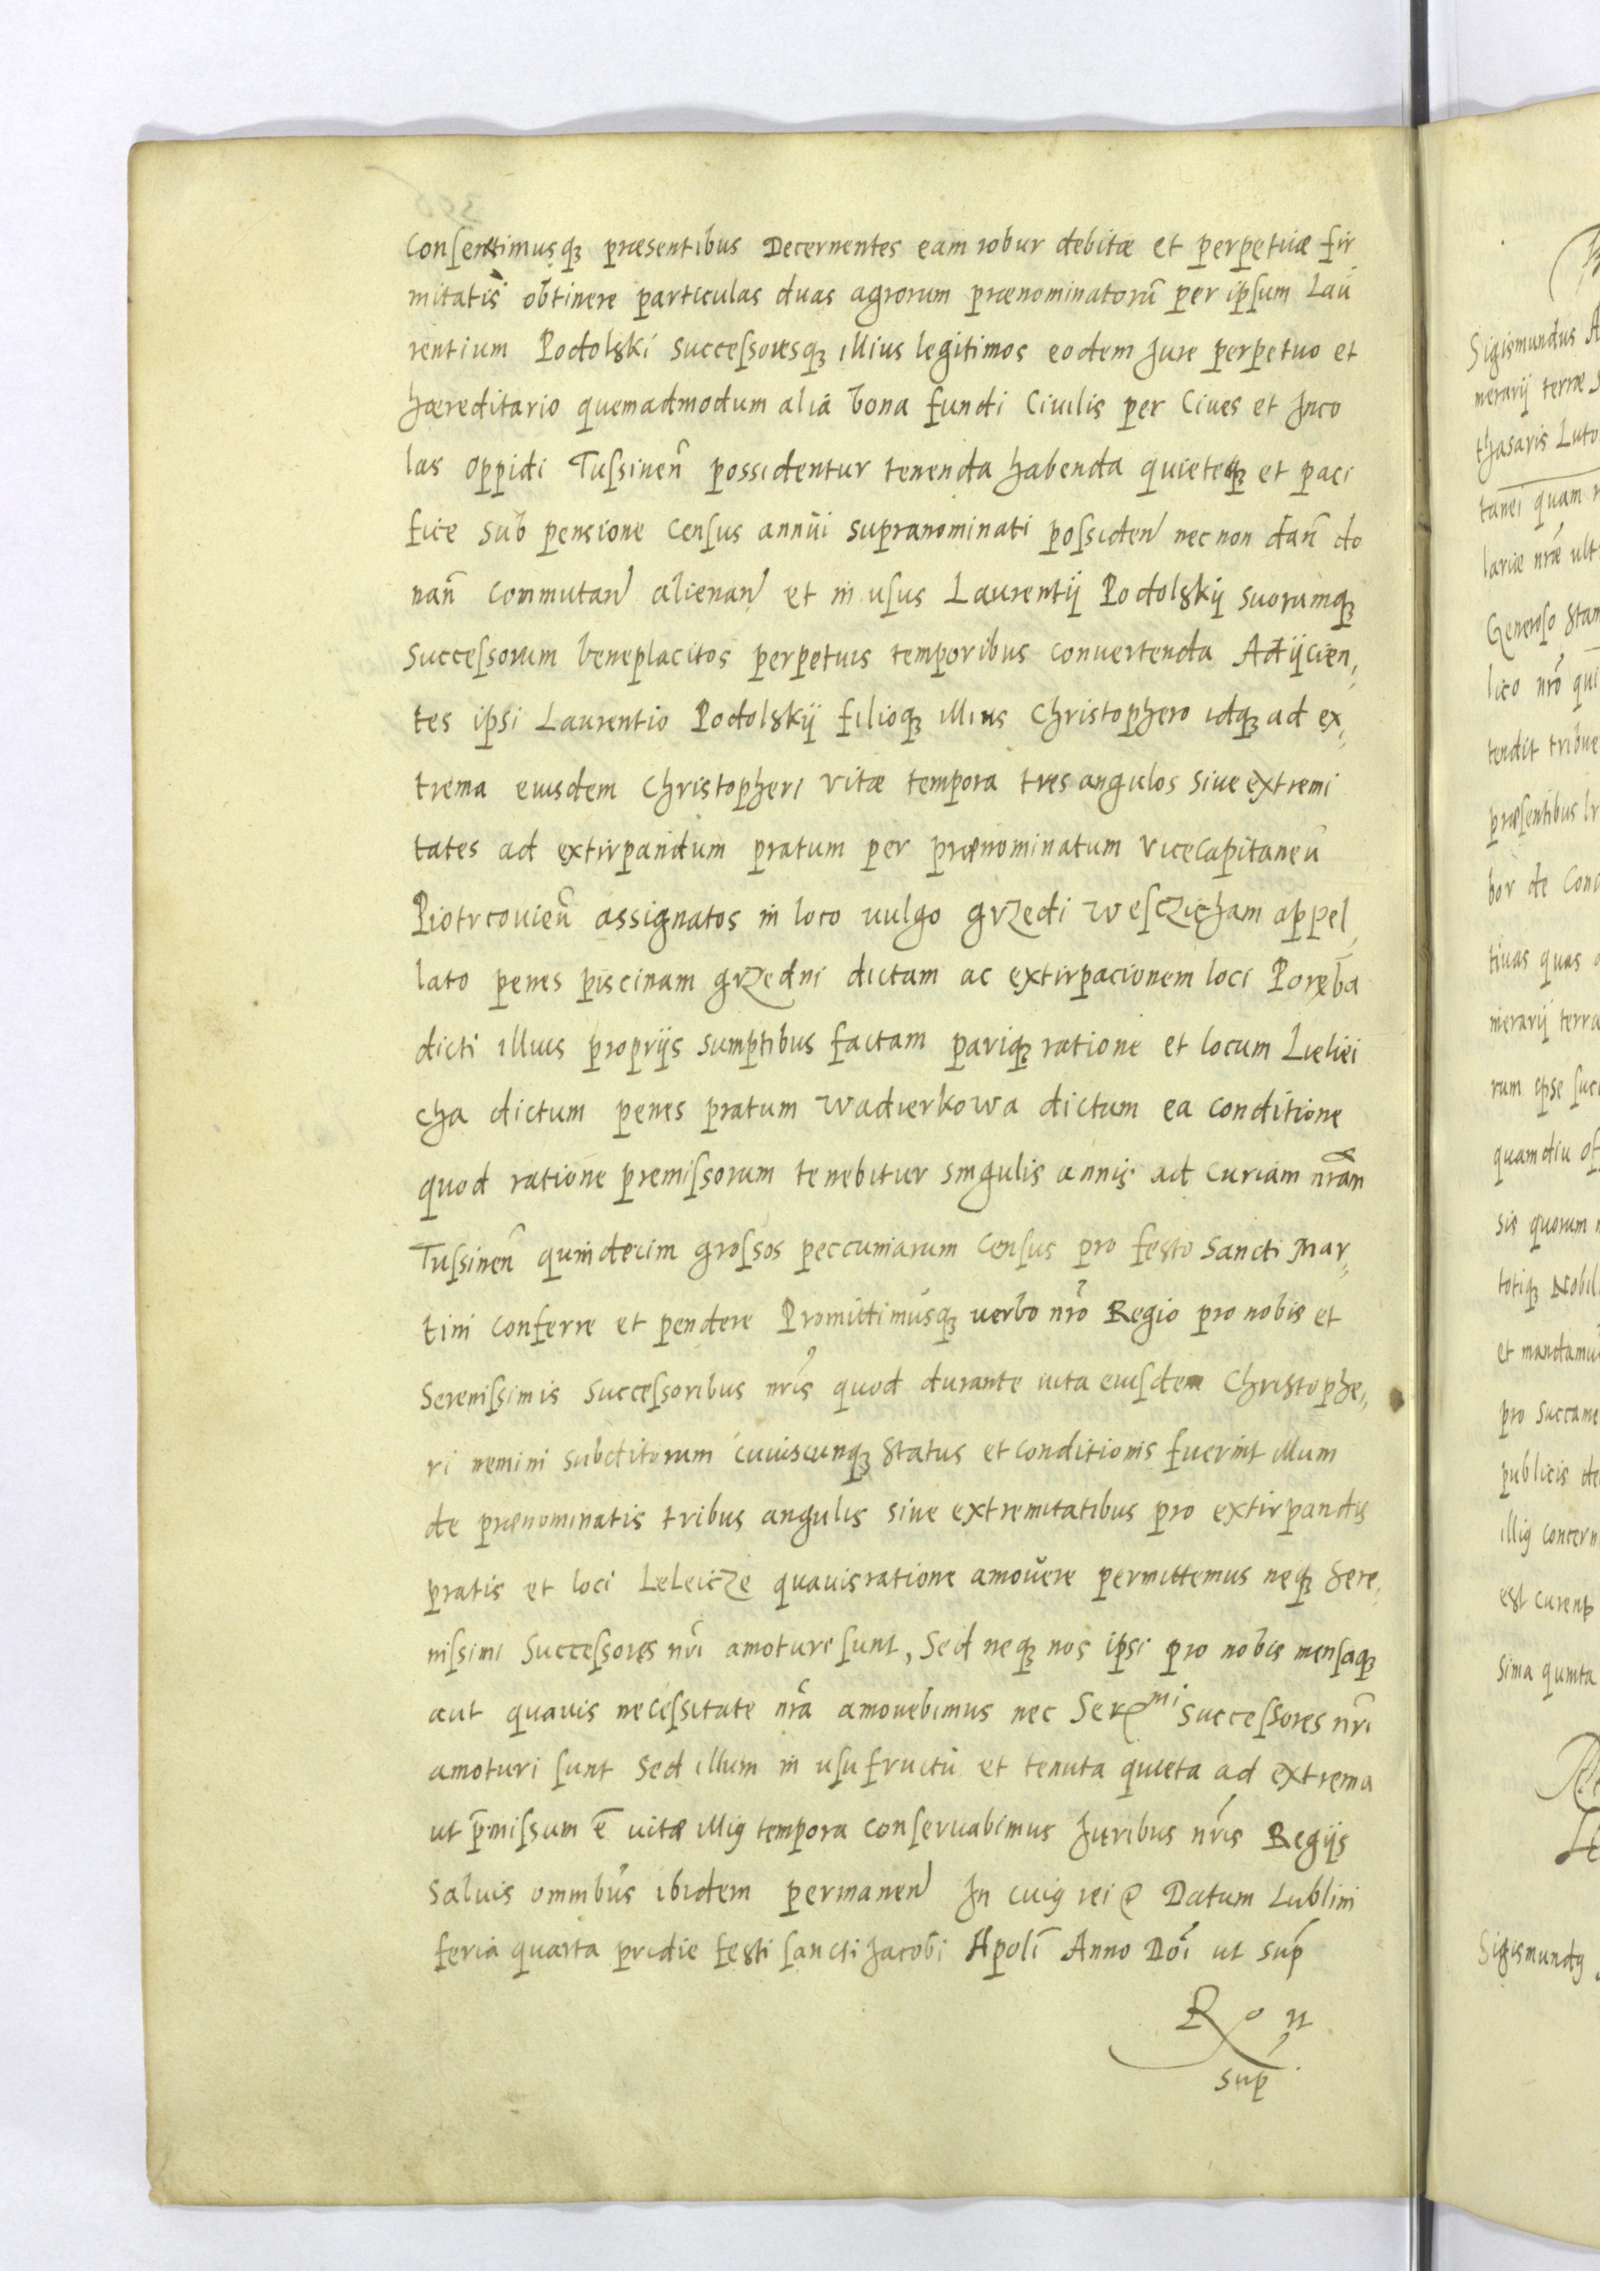 Consentimusq praesentibus Decernentes eam robur debitae et perpetuae fir
mitatis obtinere particulas duas agrorum praenominatorū per ipsum Lau
rentium Podolski Successoresq illius legitimos eodem Jure perpetuo et
haereditario quemadmodum alia bona fundi Ciuilis per Ciues et Inco
las oppidi Tussinen̄ possidentur tenenda habenda quieteq et paci
fice sub pensione Census annui supranominati possiden̄ nec non dan̄ do
nan̄ Commutan̄ alienan̄ et in usus Laurentij Podolskij suorumq
Successorum beneplacitos perpetuis temporibus conuertenda Adijcien,,
tes ipsi Laurentio Podolskij filioq illius Christophero idq ad ex,,
trema eiusdem Christopheri vitae tempora tres angulos siue extremi
tates ad extirpandum pratum per praenominatum vicecapitaneū
Piotrcouien̄ assignatos in loco uulgo grzedi wesczicham appel,,
lato penes piscinam grzedni dictam ac extirpacionem loci Poręba
dicti illius proprijs sumptibus factam pariq ratione et locum Lieliei
cha dictum penes pratum wadierkowa dictum ea conditione
quod ratione premissorum tenebitur singulis annis ad curiam nrām
Tussinen̄ quindecim grossos peccuniarum Census pro festo Sancti Mar,,
tini conferre et pendere Promittimusq uerbo nrō Regio pro nobis et
Serenissimis Successoribus nrīs quod durante uita eiusdem Christophe,,
ri nemini subditorum cuiuscunq Status et conditionis fuerint illum
de praenominatis tribus angulis siue extremitatibus pro extirpandis
pratis et loci Leleicze quauis ratione amouere permittemus neq Sere,,
nissimi Successores nrī amoture sunt, Sed neq nos ipsi pro nobis mensaq
aut quauis necessitate nrā amouebimus nec Ser^mi Successores nrī
amoturi sunt Sed illum in usufructu et tenuta quieta ad extrema
ut p̄missum ē uitae illi9 tempora conseruabimus Juribus nrīs Regijs
Saluis omnibus ibidem permanen̄ In cui9 rei & Datum Lublini
feria quarta pridie festi sancti Jacobi Apolī Anno Doī ut sup
R o n
sup
Sigismundus A
nerarij terrae
thasaris Luto
tanei quam
lariae nrāe ult
Generoso Stan
lico nrō qui
tendit tribue
praesentibus lr
bor de Cona
tiuas quas
merarij terra
rum ipse suc
quamdiu of
sis quorum
totiq Nobil
et mandamu
pro succame
publicis de
illi9 concern
est curent
sima quinta
Sigismund9